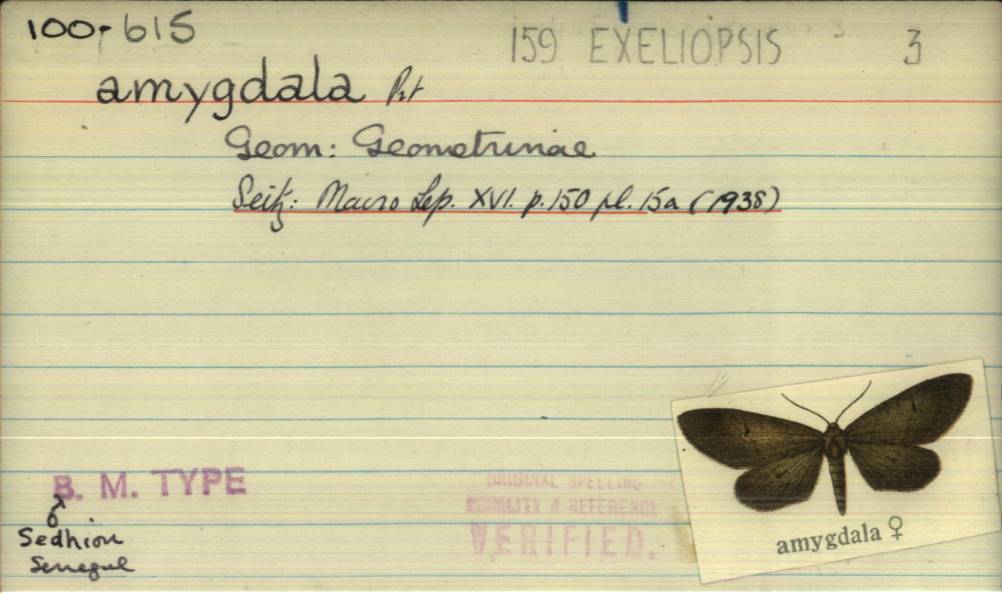 100-615
159 EXELIOPSIS 3 3
amygdala Prt
Geom: Geometrinae
Seitz: Macro Lep. XVI. p. 150 pl. 15a (1938)
B. M. TYPE
♂
Sedhiou
Senegal
ORIGINAL SPELLING
LOCALITY & REFERENCE
VERIFIED.
amygdala ♀